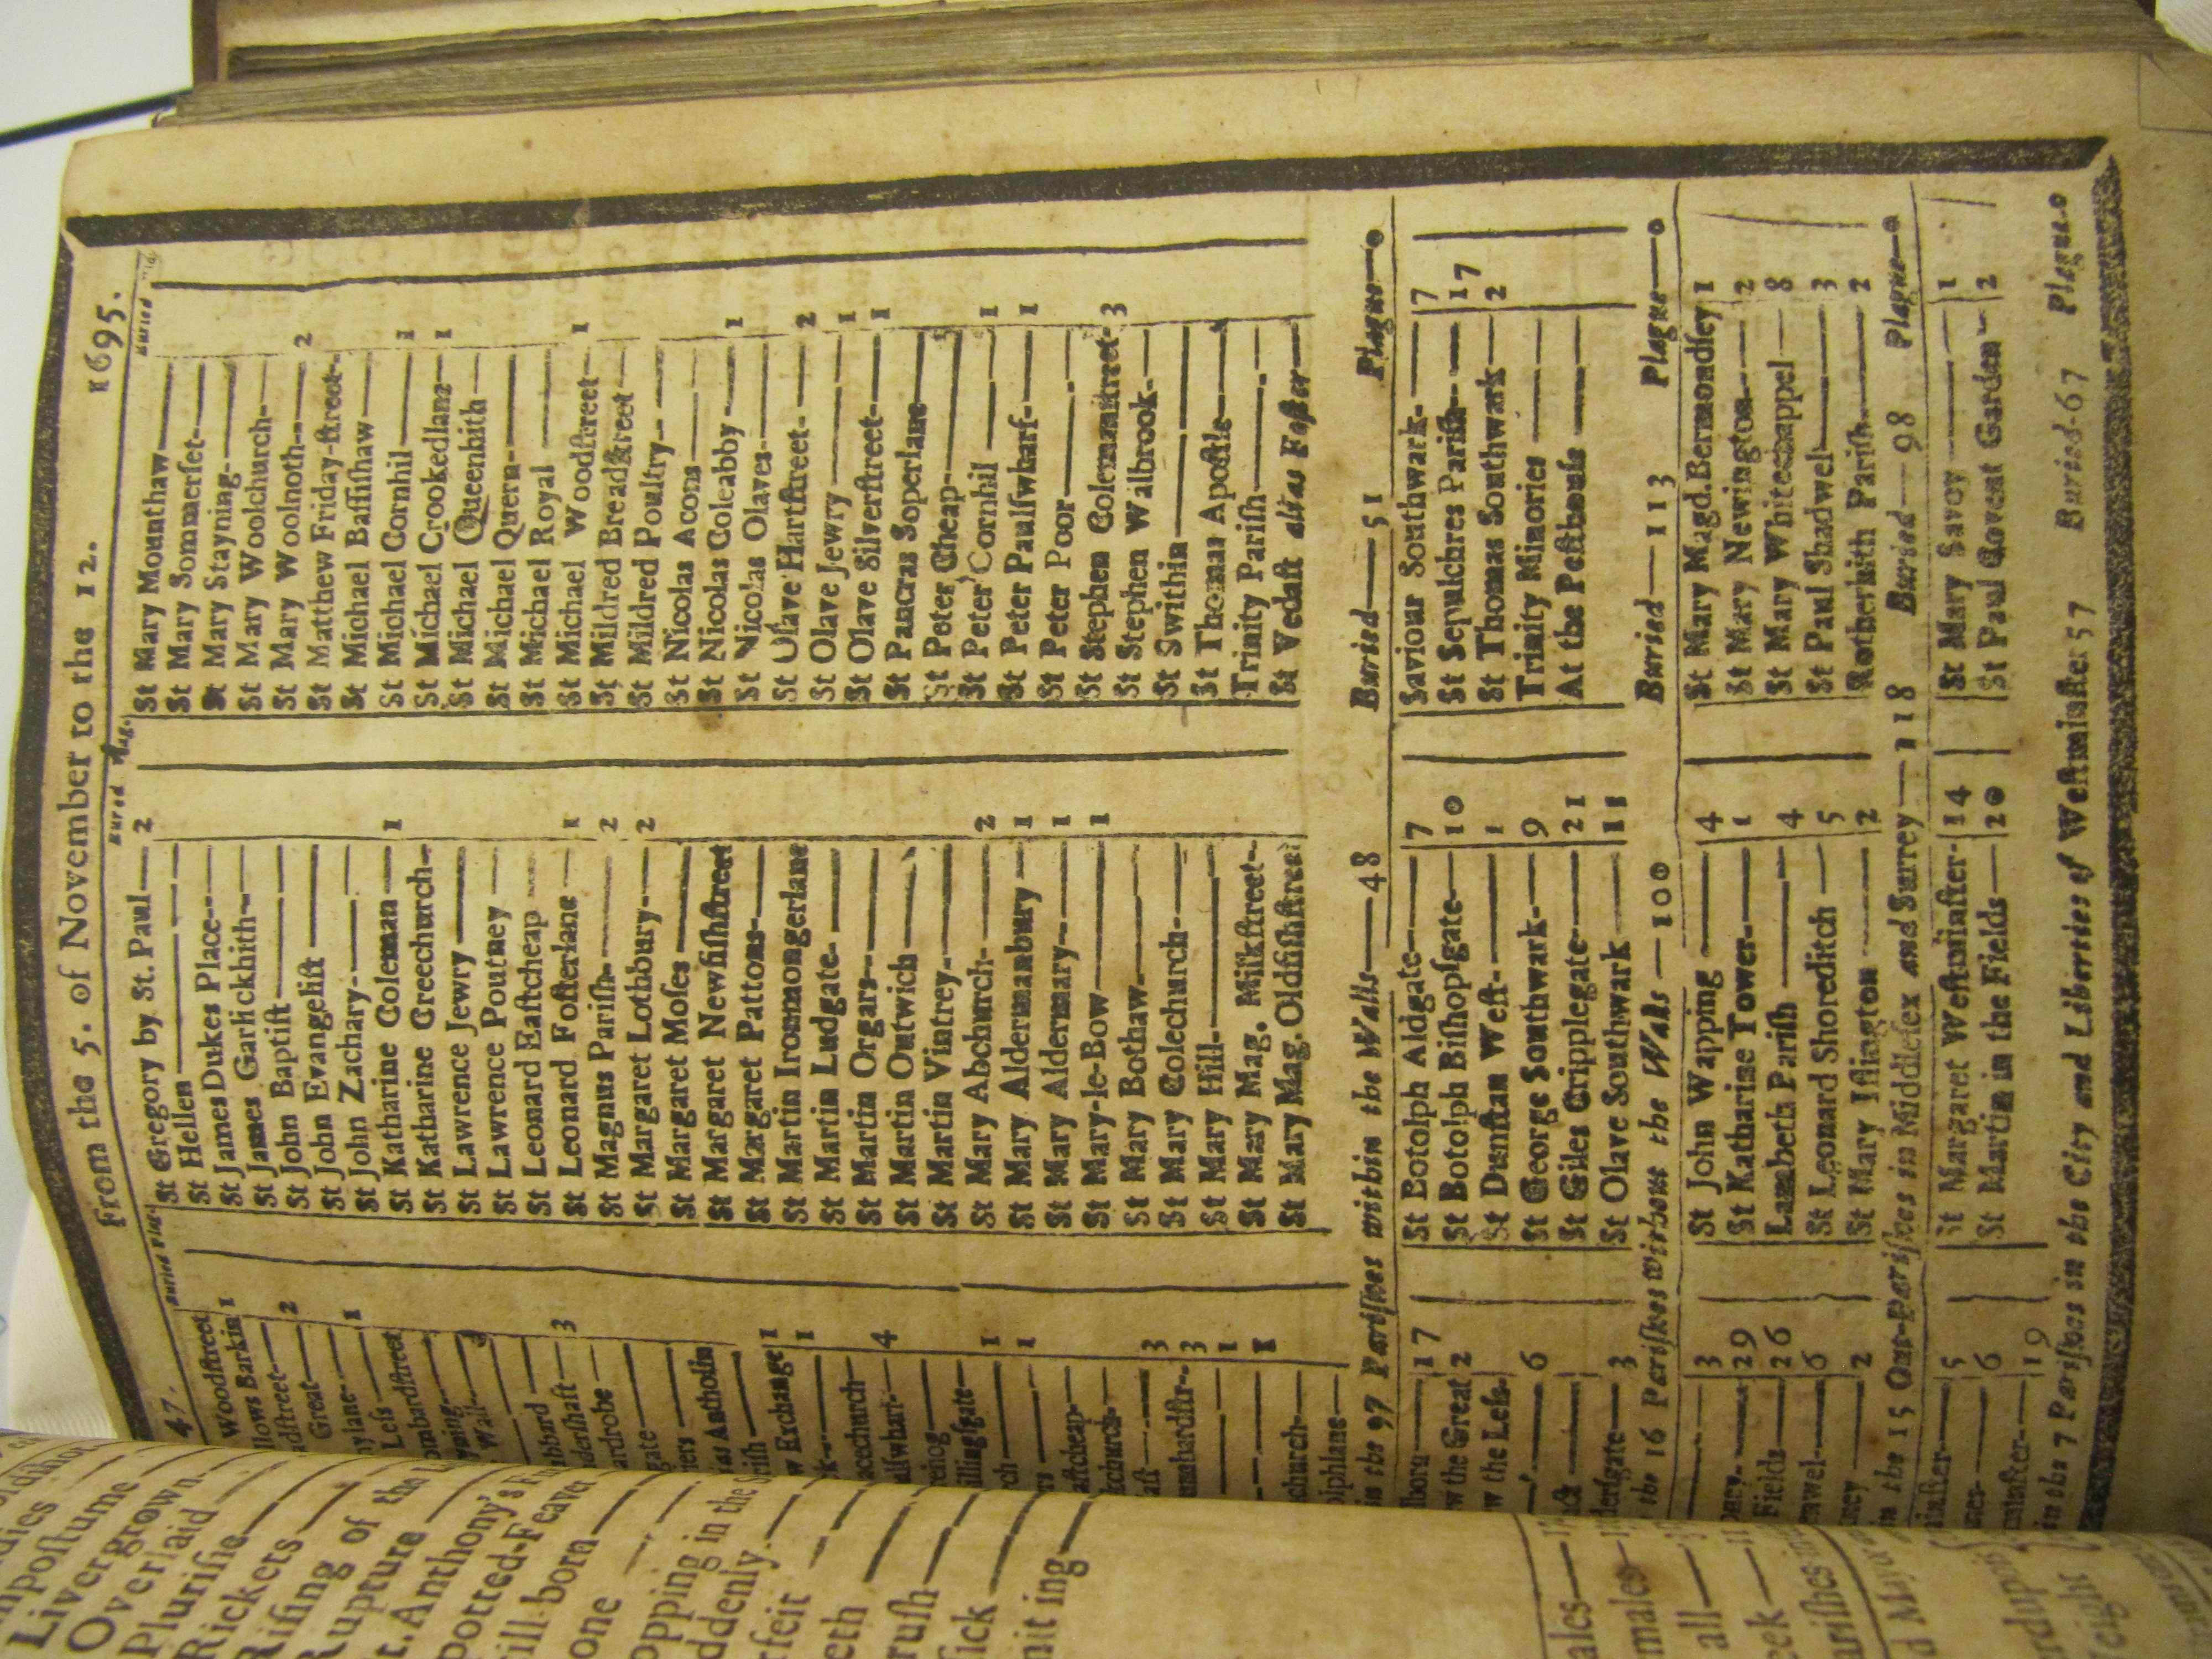 47. From the 5. of November to the 12. 1695.
Buried Plag. Buried Plag. Buried
Woodſtreet
lows Barkin 1
adſtreet—
Great— 2
ylane—
Leſs— 1
ombardſtreet
Wall—
bbard
derſhaft— 3
ardrobe—
gate—
as Antholin
riſh
w Exchange 1
1
acechurch—
alſwharf— 4
illingſgate—
rch— 1
1
aſtcheap—
kchurch—
aff— 3
umbardſtr— 3
1
1
church—
Diphlane—
St Gregory by St. Paul— 2
St Hellen—
St James Dukes Place—
St James Garlickhith—
St John Baptiſt—
St John Evangeliſt
St John Zachary—
St Katharine Coleman— 1
St Katharine Creechurch-
St Lawrence Jewry
St Lawrence Poutney
St Leonard Eaſtcheap
St Leonard Foſterlane— 1
St Magnus Pariſh— 2
St Margaret Lothbury— 2
St Margaret Moſes
St Margaret Newfiſhſtreet
St Margaret Pattons—
St Martin Ironmongerlane
St Martin Ludgate—
St Martin Orgars—
St Martin Outwich
St Martin Vintrey—
St Mary Abchurch— 2
St Mary Aldermanbury— 1
St Mary Aldermary— 1
St Mary-le-Bow— 1
St Mary Bothaw—
St Mary Colechurch—
St Mary Hill—
St Mary Mag. Milkſtreet-
St Mary Mag. Oldfiſhſtreet
St Mary Mounthaw—
St Mary Sommerſet—
St Mary Stayning—
St Mary Woolchurch—
St Mary Woolnoth— 2
St Matthew Friday-ſtreet-
St Michael Baſſiſhaw
St Michael Cornhil— 1
St Michael Crookedlane— 1
St Michael Queenhith—
St Michael Quern—
St Michael Royal
St Michael Woodſtreet— 1
St Mildred Breadſtreet
St Mildred Poultry—
St Nicolas Acons
St Nicolas Coleabby— 1
St Nicolas Olaves—
St Olave Hartſtreet— 2
St Olave Jewry— 1
St Olave Silverſtreet— 1
St Pancras Soperlane
St Peter Cheap—
St Peter Cornhil 1
St Peter Paulſwharf— 1
St Peter Poor—
St Stephen Colemanſtreet- 3
St Stephen Walbrook—
St Swithin
St Thomas Apoſtle—
Trinity Pariſh—
St Vedaſt alias Foſter—
in the 97 Pariſhes within the Walls—48 Buried—51 Plague—0
lborn— 17
w the Great 2
w the Leſs
6
derſgate— 3
St Botolph Aldgate— 7
St Botolph Biſhopſgate— 10
St Dunſtan Weſt— 1
St George Southwark— 9
St Giles Cripplegate— 21
St Olave Southwark 11
Saviour Southwark— 7
St Sepulchres Pariſh— 17
St Thomas Southwark— 2
Trinity Minories
At the Peſthouſe
the 16 Pariſhes without the Walls—100 Buried—113 Plague—0
3
29
Fields— 26
6
ney 2
St John Wapping 4
St Katharine Tower— 1
Lambeth Pariſh 4
St Leonard Shoreditch— 5
St Mary Iſlington 2
St Mary Magd. Bermondſey 1
St Mary Newington— 2
St Mary Whitechappel— 8
St Paul Shadwel— 3
Rotherhith Pariſh— 2
in the 15 Out-Pariſhes in Middleſex and Surrey—118 Buried—98 Plague—0
5
6
19
St Margaret Weſtminſter- 14
St Martin in the Fields— 20
St Mary Savoy 1
St Paul Covent Garden— 2
in the 7 Pariſhes in the City and Liberties of Weſtminſter 57 Buried-67 Plague 0
Impoſthume
Livergrown
Overlaid
Pluriſie
Rickets
Riſing of the
Rupture
t. Anthony's
potted-Feaver
ill born
one
opping in the
ddenly
rfeit
eeth
ruſh
ſick
mit ing
ales
males
all
eek
ariſhes